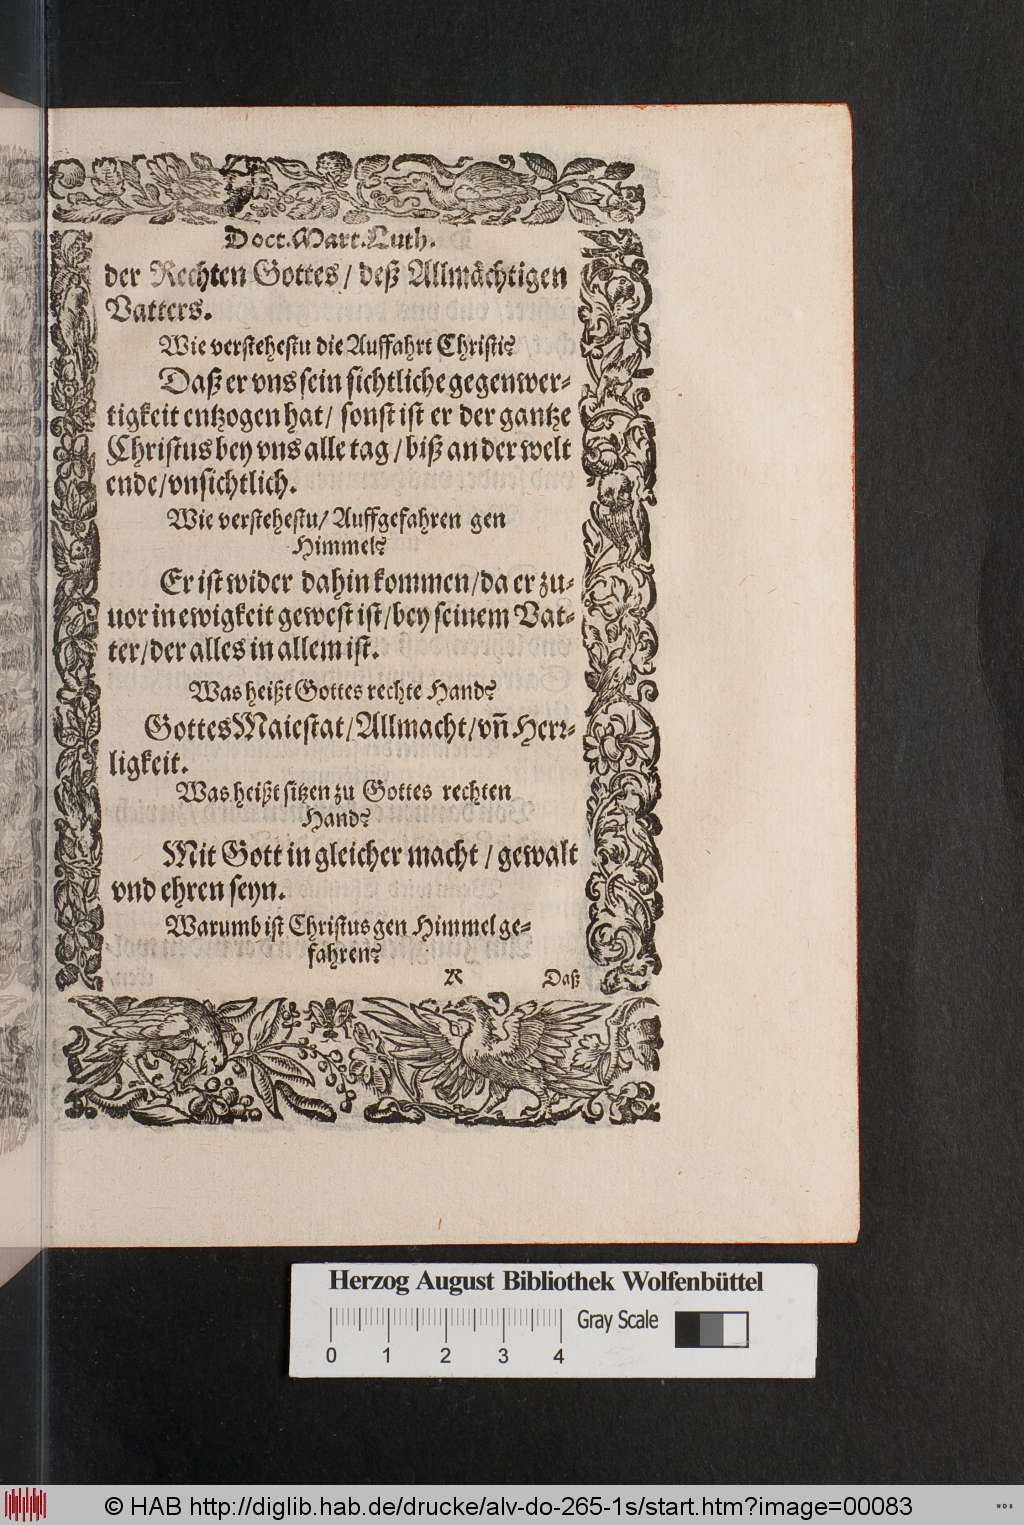 Doct. Mart. Luth.
der Rechten Gottes / deß Allmächtigen
Vatters.
Wie verstehestu die Auffahrt Christi?
Daß er vns sein sichtliche gegenwer-
tigkeit entzogen hat / sonst ist er der gantze
Christus bey vns alle tag / biß an der welt
ende / vnsichtlich.
Wie verstehestu / Auffgefahren gen
Himmel?
Er ist wider dahin kommen / da er zu-
uor in ewigkeit gewest ist / bey seinem Vat-
ter / der alles in allem ist.
Was heißt Gottes rechte Hand?
Gottes Maiestat / Allmacht / vñ Herr-
ligkeit.
Was heißt sitzen zu Gottes rechten
Hand?
Mit Gott in gleicher macht / gewalt
vnd ehren seyn.
Warumb ist Christus gen Himmel ge-
fahren?
Daß
Herzog August Bibliothek Wolfenbüttel
Gray Scale
0 1 2 3 4
© HAB http://diglib.hab.de/drucke/alv-do-265-1s/start.htm?image=00083